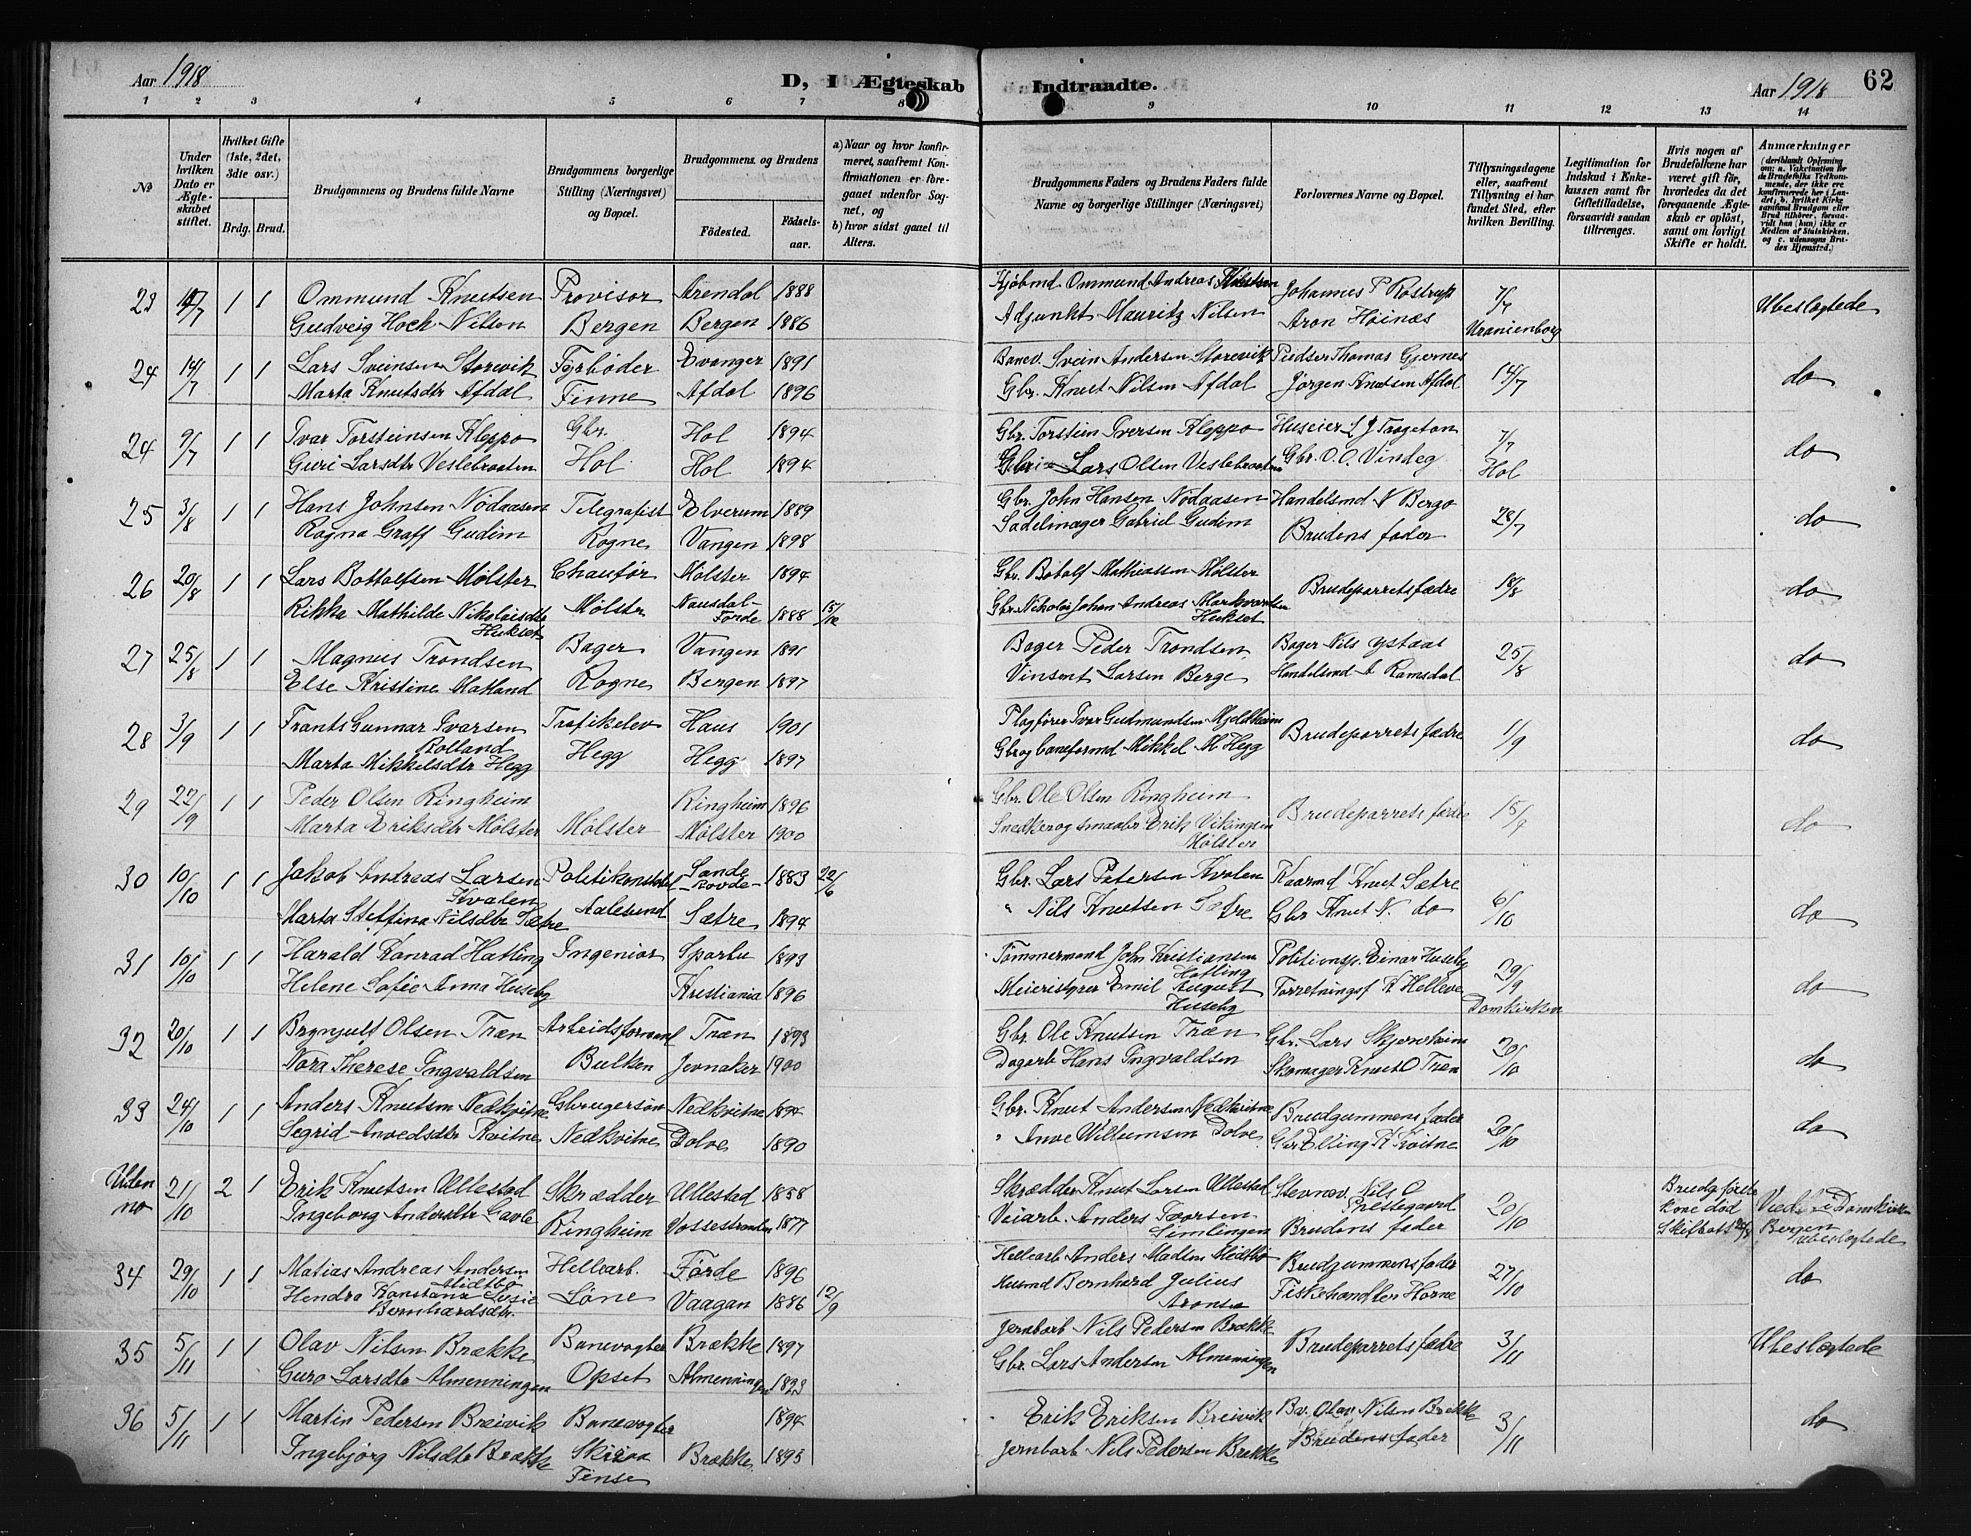 Aar 1918
D, I Ægteskab Indtraadte.
Aar 1918
62
1 2 3 4 5 6 7 8 9 10 11 12 13 14
No
Under hvilken Dato er Ægteskabet stiftet.
Hvilket Gifte (1ste, 2det, 3die osv.)
Brdg. Brud.
Brudgommens og Brudens fulde Navne
Brudgommens borgerlige Stilling (Næringsvei) og Bopæl.
Brudgommens og Brudens
Fødested.
Fødselsaar.
a) Naar og hvor konfirmeret, saafremt Konfirmationen er foregaaet udenfor Sognet, og
b) hvor sidst gaaet til Alters.
Brudgommens Faders og Brudens Faders fulde Navne og borgerlige Stillinger (Næringsvei)
Forlovernes Navne og Bopæl.
Tillysningsdagene eller, saafremt Tillysning ei har fundet Sted, efter hvilken Bevilling.
Legitimation for Indskud i Enkekassen samt for Giftetilladelse, forsaavidt saadan tiltrænges.
Hvis nogen af Brudefolkene har været gift før, hvorledes da det foregaaende Ægteskab er opløst, samt om lovligt Skifte er holdt.
Anmærkninger
23 14/7 1 1 Ommund Knutsen Provisor Arendal 1888 Kjøbmd Ommund Andreas Knutsen Johannes P Rostrup 7/7 Ubeslægtede
Gudveig Hoch Nilsen Bergen Bergen 1886 Adjunkt Mauritz Nilsen Aron Høinæs Uranienborg
24 14/7 1 1 Lars Sveinsen Storevik Fyrbøder Evanger 1891 Banev. Svein Andersen Storevik Pudser Thomas Gjernes 14/7 do
Marta Knutsdtr Afdal Finne Afdal 1896 Gbr. Knut Nilsen Afdal Jørgen Knutsen Afdal
24 9/7 1 1 Ivar Torsteinsen Kleppo Gbr. Hol 1894 Gbr. Torstein Iversen Kleppo Huseier L J Trageton 7/7 do
Guri Larsdtr Veslebraaten Hol Hol 1894 Lars Olsen Veslebraaten Gbr. O. O. Vindeg Hol
25 3/8 1 1 Hans Johnsen Nødaasen Telegrafist Elverum 1889 Gbr. John Hansen Nødaasen Handelsmd N Bergo 28/7 do
Ragna Graff Gudim Rogne Vangen 1898 Sadelmager Gabriel Gudim Brudens fader
26 20/8 1 1 Lars Bottolfsen Mølster Chaufør Mølster 1894 Gbr. Botolf Mathiassen Mølster Brudeparrets fædre 18/8 do
Rikka Mathilde Nikolaisdtr Mølster Nausdal- 1888 15/10 Gbr. Nikolai Johan Andreas Markvartsen
Hukset Førde Hukset
27 25/8 1 1 Magnus Trondsen Bager Vangen 1891 Bager Peder Trondsen Bager Nils Ystaas 25/8 do
Else Kristine Matland Rogne Bergen 1897 Vinsent Larsen Berge Handelsmd A Ramsdal
28 3/9 1 1 Frants Gunnar Ivarsen Trafikelev Haus 1901 Pløgfører Ivar Gudmundsen Mjeldheim Brudeparrets fædre 1/9 do
Rolland Hegg
Marta Mikkelsdtr Hegg Hegg 1897 Gbr og baneformd Mikkel M Hegg
29 22/9 1 1 Peder Olsen Ringheim Ringheim 1896 Gbr. Ole Olsen Ringheim Brudeparrets fædre 15/9 do
Marta Eriksdtr Mølster Mølster Mølster 1900 Snedker og smaabr Erik Vikingsen
Mølster
30 10/10 1 1 Jakob Andreas Larsen Politikonstabel Sande 1883 22/6 Gbr. Lars Petersen Kvalen Kaarmd Knut Sætre 6/10 do
Kvalen Aalesund Rovde
Marta Steffina Nilsdtr Sætre Sætre 1894 " Nils Knutsen Sætre Gbr Knut N. do
31 10/10 1 1 Harald Konrad Hatling Ingeniør Sparbu 1893 Tømmermand John Kristiansen Politionsp. Einar Huseby 29/9 do
Hatling
Helene Sofie Anna Huseby Kristiania 1896 Meieristyrer Emil August Forretningsf K Helleve Domkirken
Huseby
32 20/10 1 1 Brynjulf Olsen Træn Arbeidsformand Træn 1893 Gbr. Ole Knutsen Træn Gbr. Lars Skjerveheim 20/10 do
Nora Therese Ingvaldsen Bulken Jevnaker 1900 Dagarb Hans Ingvaldsen Skomager Knut O Træn
33 24/10 1 1 Anders Knutsen Nedkvitne Gbrugersøn Nedkvitne 1894 Gbr. Knut Andersen Nedkvitne Brudgummens fader 20/10 do
Segrid Anvedsdtr Kvitne Nedkvitne Dolve 1890 " Anve Villumsen Dolve Gbr Elling K Kvitne
Uden no 21/10 2 1 Erik Knutsen Ullestad Skrædder Ullestad 1858 Skrædder Knut Larsen Ullestad Stevnev. Nils O Prestegaard 20/10 Brudg. første kone død
Ingeborg Andersdtr Gavle Ringheim Vossestranden 1877 Veiarb. Anders Taorsen Simlingen Brudens fader Skifteatt Viede i Domkirken Bergen Ubeslegtede
34 29/10 1 1 Matias Andreas Andersen Hellearb. Førde 1896 Hellearb Anders Madsen Midtbø Brudgummens fader 27/10 do
Midtbø
Hendra Konstanse Lusie Løne Vaagan 1886 12/9 Husmd Bernhard Julius Fiskehandler Horne
Bernhardsdtr. Aronsen
35 5/11 1 1 Olav Nilsen Brække Banevogter Brække 1897 Jernbarb Nils Pedersen Brække Brudeparrets fædre 3/11 Ubeslægtede
Guro Larsdtr Almenningen Opset Almenningen 1893 Gbr. Lars Andersen Almenningen
36 5/11 1 1 Martin Pedersen Breivik Banevogter 1894 Erik Eriksen Breivik Bv. Olav Nilsen Brække 3/11 do
Ingebjørg Nilsdtr Brække Brække 1895 Jernbarb Nils Pedersen Brække Brudens fader
Finse